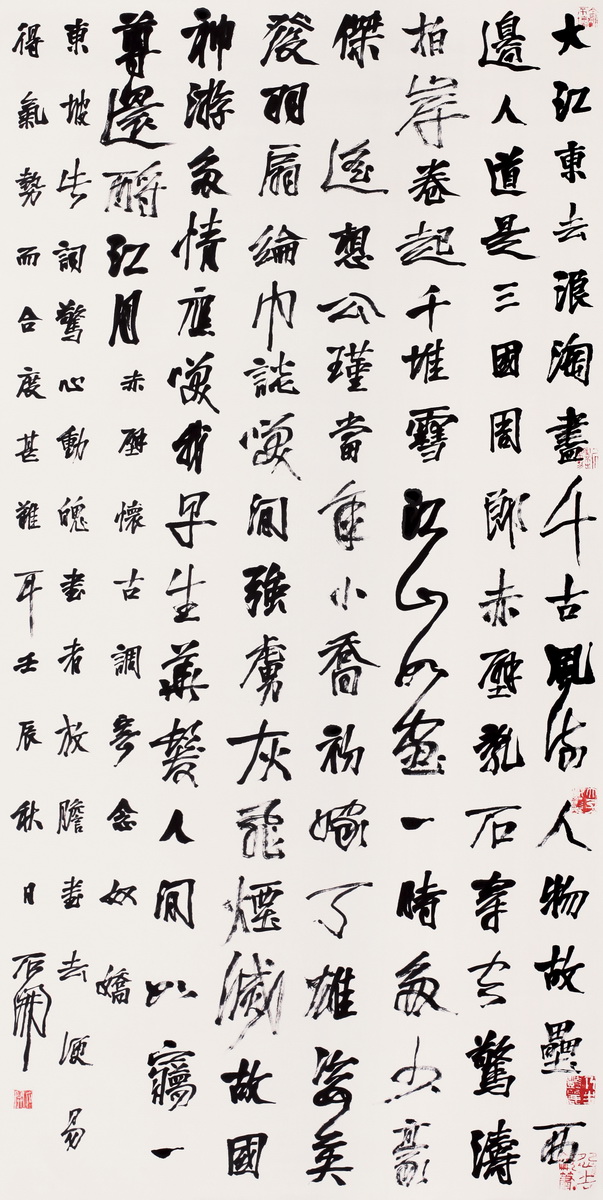 大江東去浪淘盡千古風流人物故壘西
邊人道是三國周郎赤壁亂石穿空驚濤
拍岸卷起千堆雪江山如畫一時多少豪
傑遙想公瑾當年小喬初嫁了雄姿英
發羽扇綸巾談笑間強虜灰飛煙滅故國
神游多情應笑我早生華髮人間如夢一
尊還酹江月赤壁懷古調寄念奴嬌
東坡此詞驚心動魄書者放膽書去便易
得氣勢而合度甚難耳壬辰秋日石開